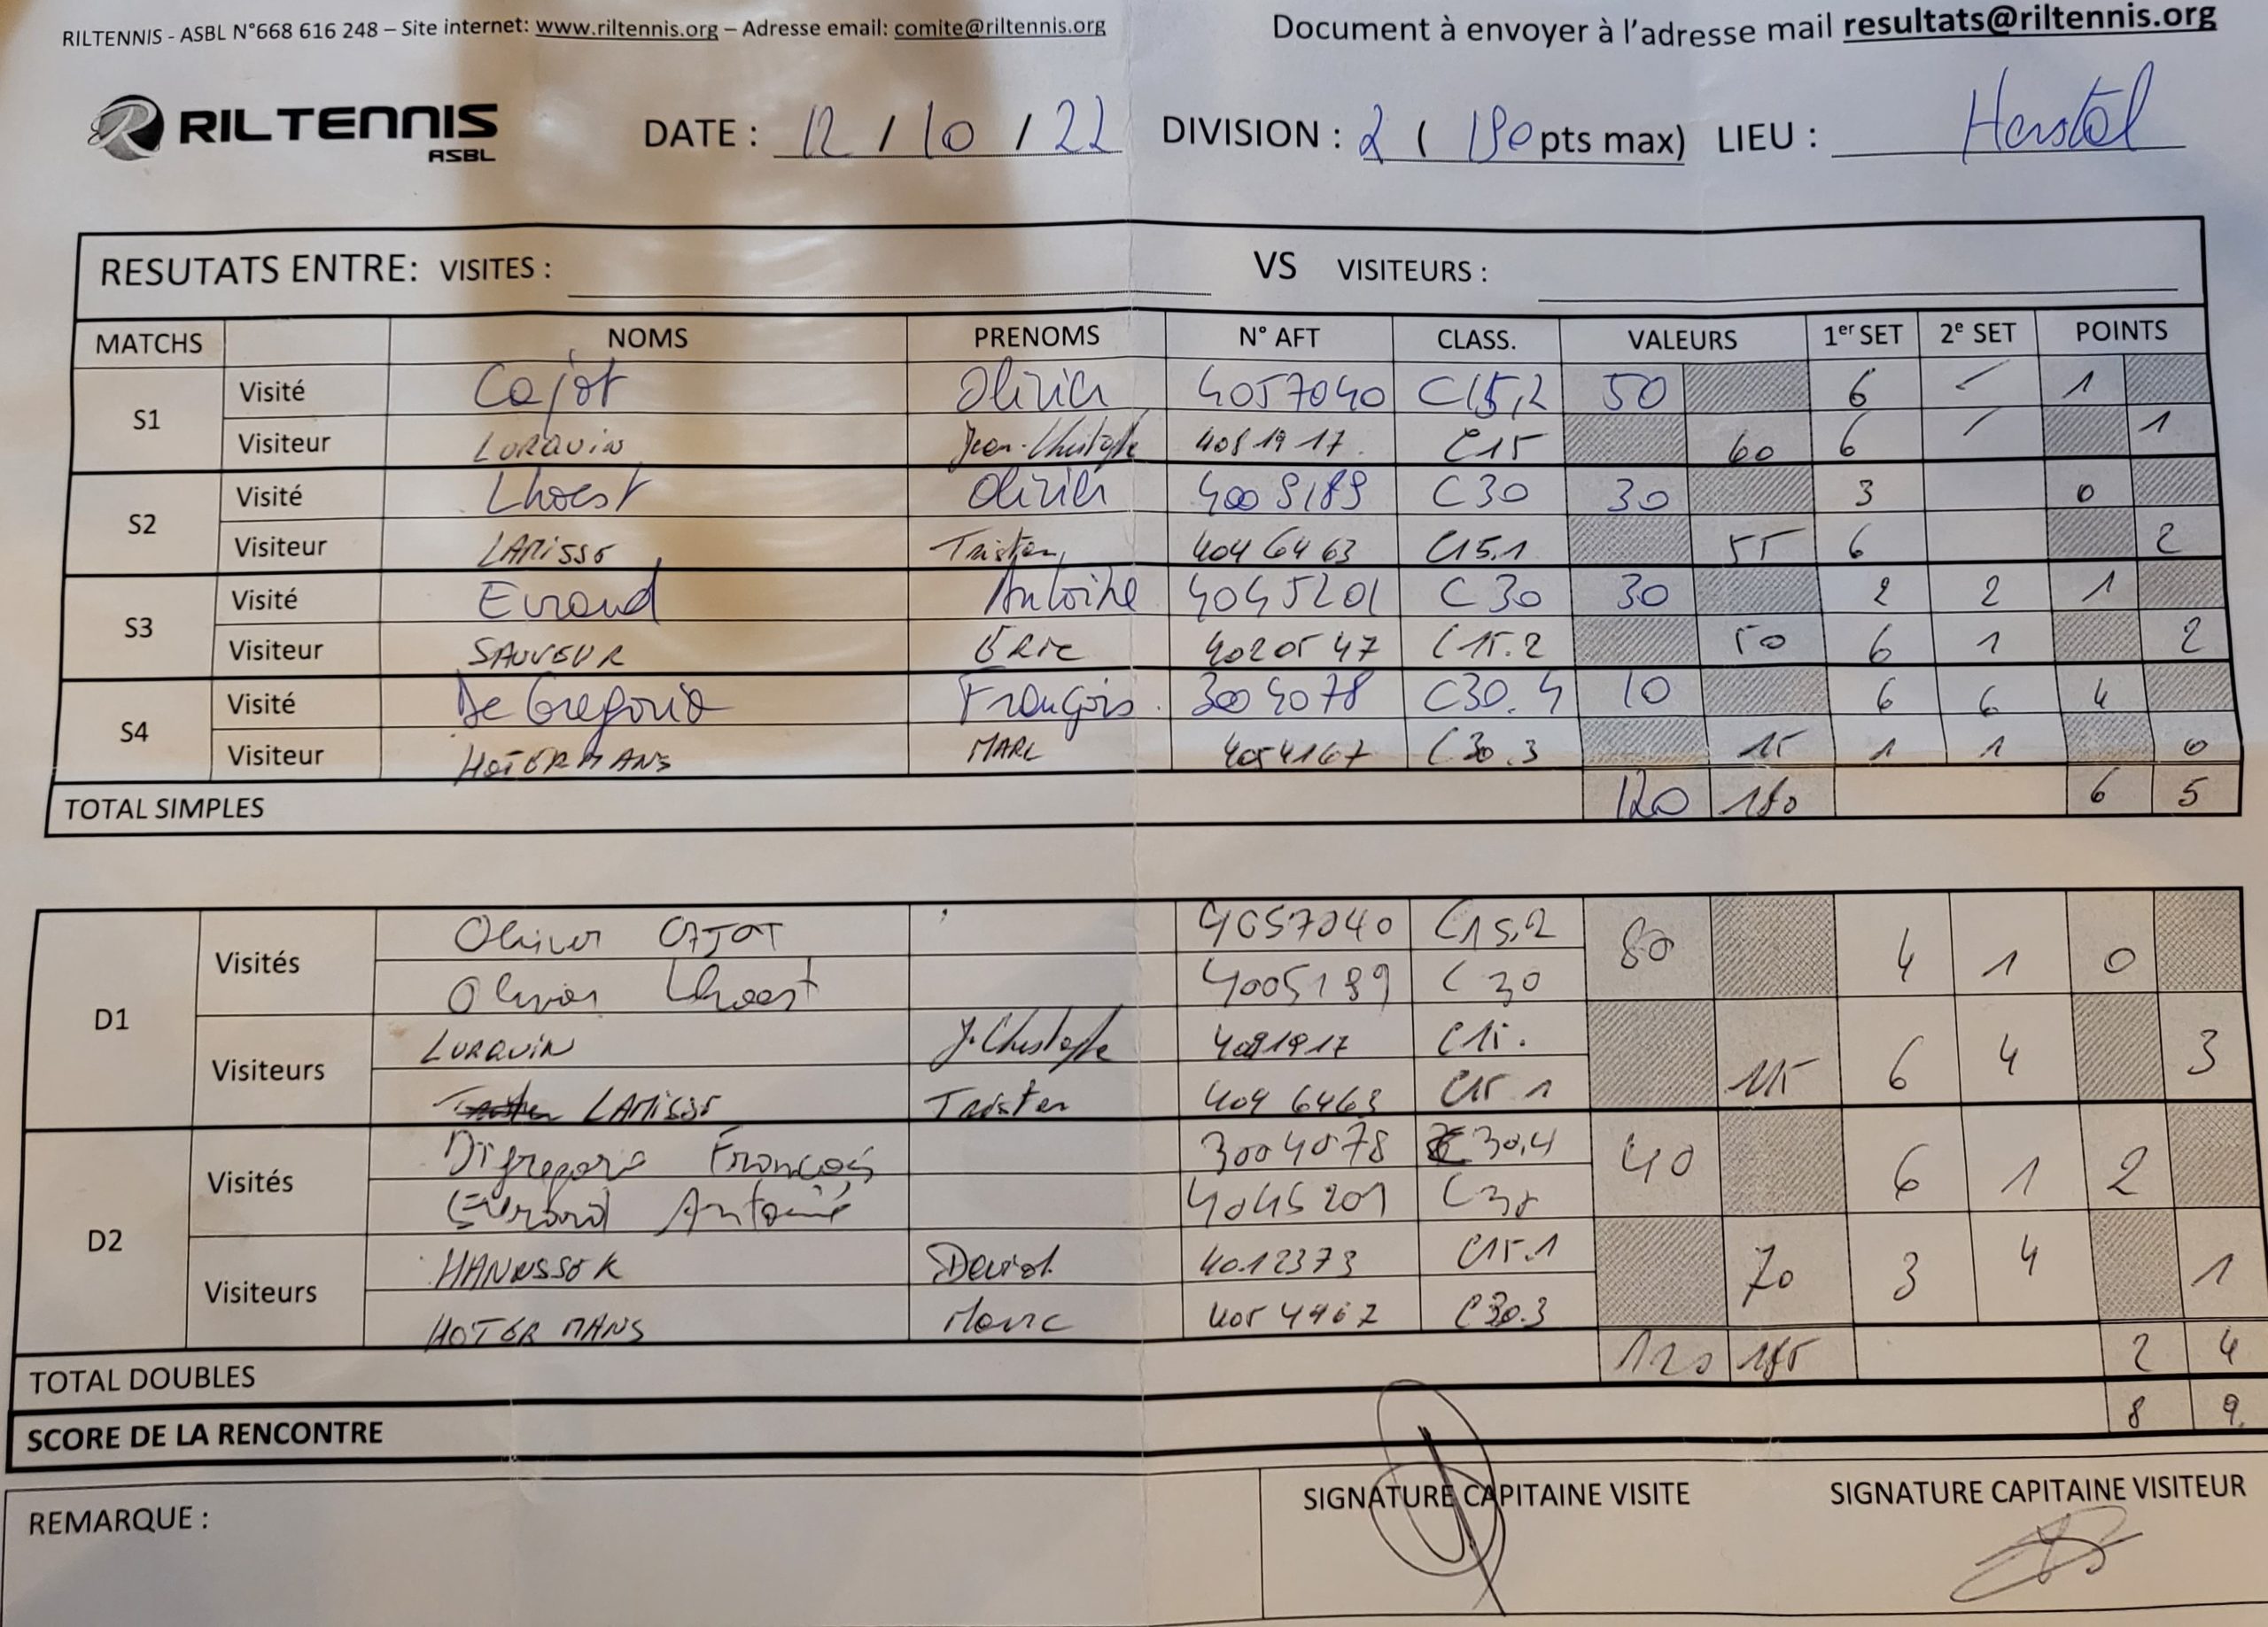 RILTENNIS - ASBL N°668 616 248 – Site internet: www.riltennis.org – Adresse email: comite@riltennis.org
Document à envoyer à l'adresse mail resultats@riltennis.org
RILTENNIS ASBL
DATE : 12 / 10 / 22 DIVISION : 2 ( 180 pts max) LIEU : Herstal
RESUTATS ENTRE: VISITES : VS VISITEURS :
MATCHS NOMS PRENOMS N° AFT CLASS. VALEURS 1er SET 2e SET POINTS
S1 Visité Cajot Olivier 4057040 C15,2 50 6 1
Visiteur LURQUIN Jean-Christophe 4081917 C15 60 6 1
S2 Visité Lhoest Olivier C30 30 3 0
Visiteur LAMISSE Tristan 4046463 C15.1 55 6 2
S3 Visité Evrard Antoine 4045201 C30 30 2 2 1
Visiteur SAUVEUR ERIC 4020547 C15.2 50 6 1 2
S4 Visité De Gregorio François 3004078 C30.4 10 6 6 4
Visiteur HOTERMANS MARC 4054167 C30.3 15 1 1 0
TOTAL SIMPLES 120 180 6 5
D1 Visités Olivier CAJOT 4057040 C15,2 80 4 1 0
Olivier Lhoest 4005189 C30
Visiteurs LURQUIN J.Christophe 4081917 C15. 115 6 4 3
LAMISSE Tristan 4046463 C15.1
D2 Visités Digregorio François 3004078 C30,4 40 6 1 2
Evrard Antoine 4045201 C30
Visiteurs HANUSSEK David 4012373 C15.1 70 3 4 1
HOTERMANS Marc 4054467 C30.3
TOTAL DOUBLES 120 185 2 4
SCORE DE LA RENCONTRE 8 9
REMARQUE :
SIGNATURE CAPITAINE VISITE SIGNATURE CAPITAINE VISITEUR